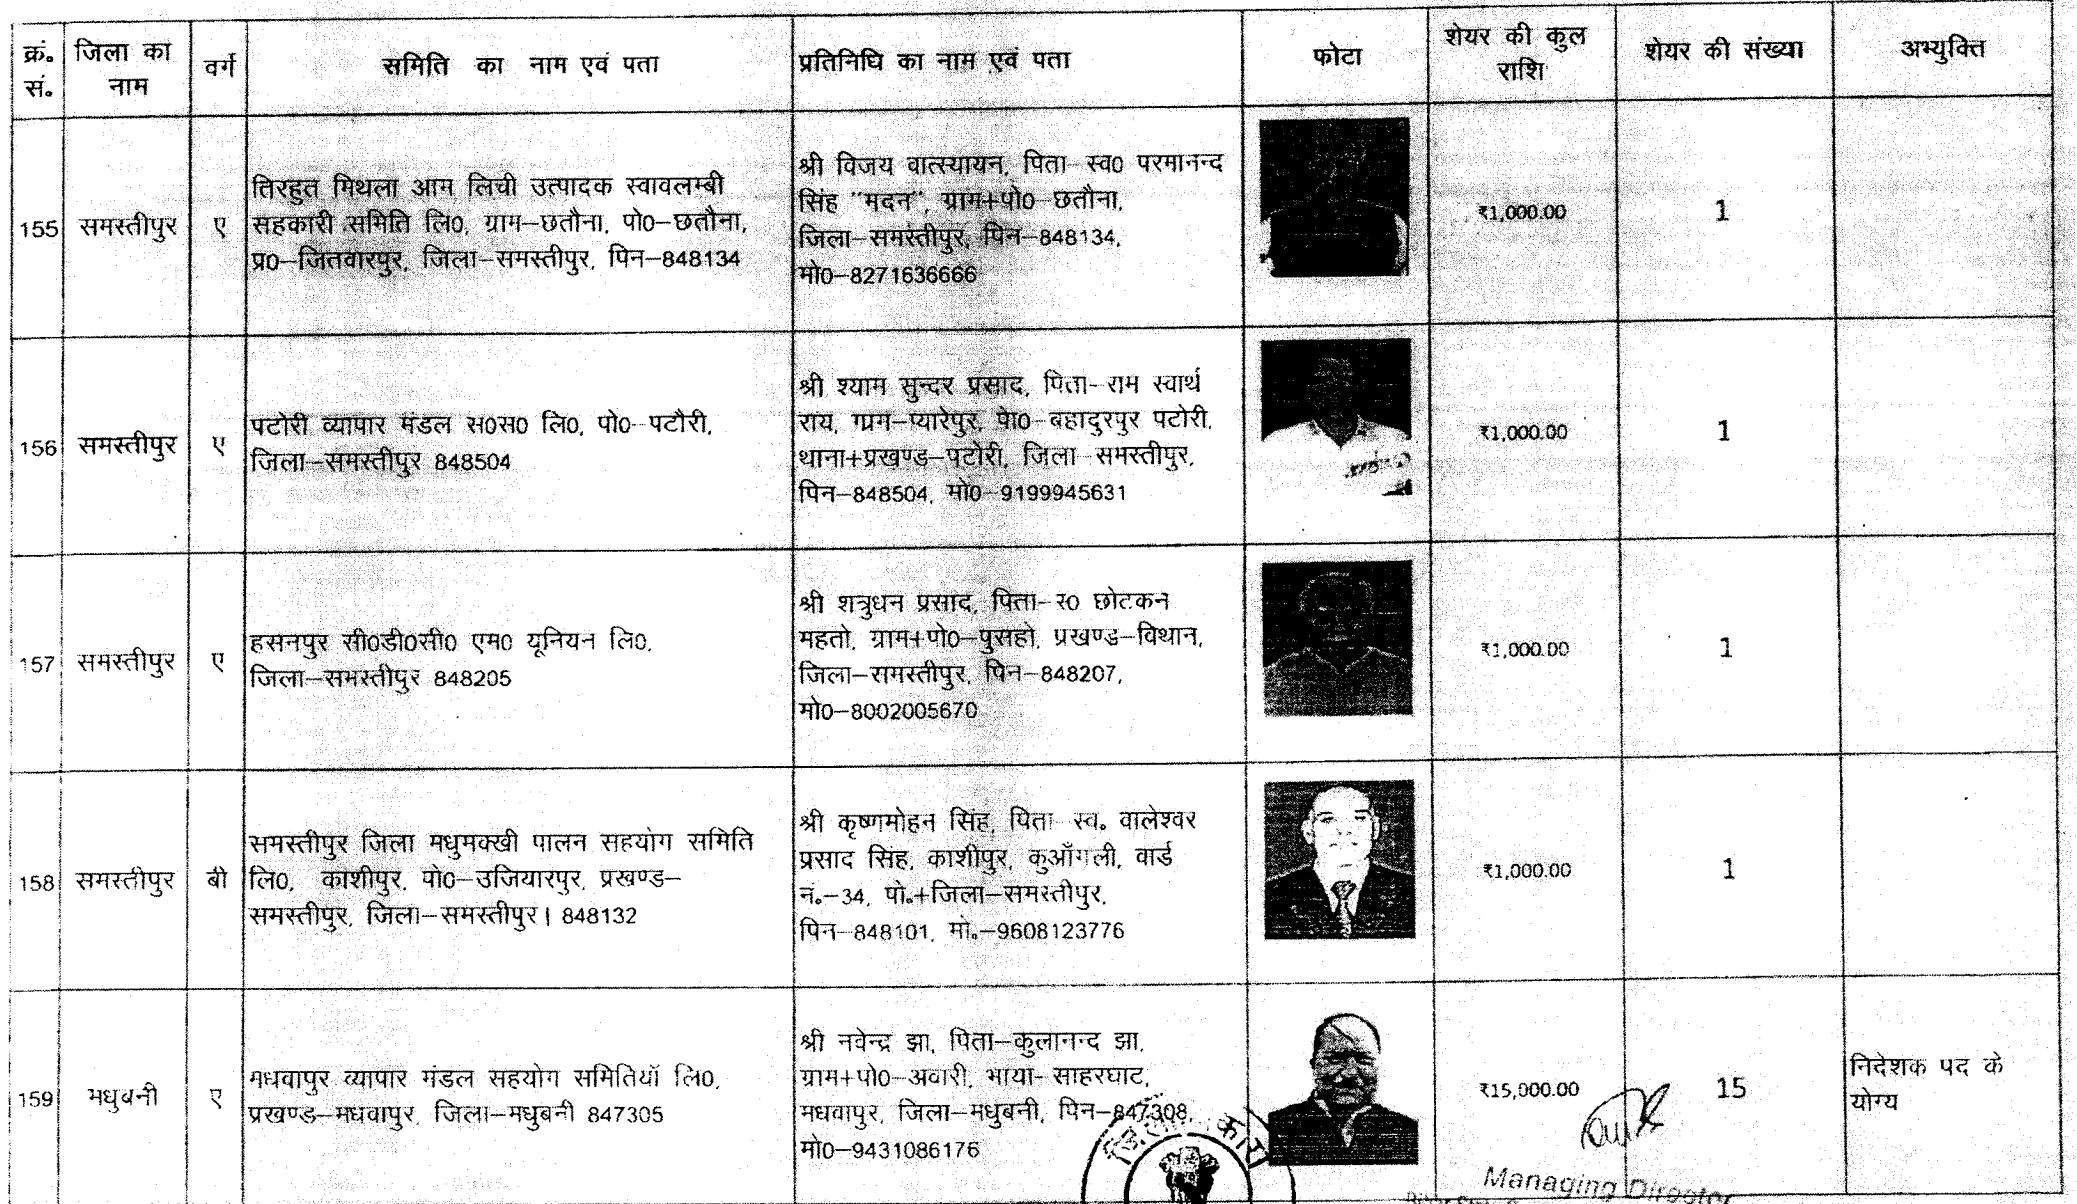 क्रं. सं.
जिला का नाम
वर्ग
समिति का नाम एवं पता
प्रतिनिधि का नाम एवं पता
फोटा
शेयर की कुल राशि
शेयर की संख्या
अभ्युक्ति
155
समस्तीपुर
ए
तिरहुत मिथला आम लिची उत्पादक स्वावलम्बी
सहकारी समिति लि0, ग्राम–छतौना, पो0–छतौना,
प्र0–जितवारपुर, जिला–समस्तीपुर, पिन–848134
श्री विजय वात्स्यायन, पिता स्व0 परमानन्द
सिंह "मदन", ग्राम+पो0 छतौना,
जिला–समस्तीपुर, पिन–848134,
मो0–8271636666
₹1,000.00
1
156
समस्तीपुर
ए
पटोरी व्यापार मंडल स0स0 लि0, पो0–पटौरी,
जिला–समस्तीपुर 848504
श्री श्याम सुन्दर प्रसाद, पिता–राम स्वार्थ
राय, ग्राम–प्यारेपुर, पो0–बहादुरपुर पटोरी,
थाना+प्रखण्ड–पटोरी, जिला समस्तीपुर,
पिन–848504, मो0–9199945631
₹1,000.00
1
157
समस्तीपुर
ए
हसनपुर सी0डी0सी0 एम0 यूनियन लि0,
जिला–समस्तीपुर 848205
श्री शत्रुधन प्रसाद, पिता–स0 छोटकन
महतो, ग्राम+पो0–पुसहो, प्रखण्ड–विथान,
जिला–समस्तीपुर, पिन–848207,
मो0–8002005670
₹1,000.00
1
158
समस्तीपुर
बी
समस्तीपुर जिला मधुमक्खी पालन सहयोग समिति
लि0, काशीपुर, पो0–उजियारपुर, प्रखण्ड–
समस्तीपुर, जिला–समस्तीपुर| 848132
श्री कृष्णमोहन सिंह, पिता स्व. वालेश्वर
प्रसाद सिंह, काशीपुर, कुऑंगली, वार्ड
नं.–34, पो.+जिला–समस्तीपुर,
पिन–848101, मो.–9608123776
₹1,000.00
1
159
मधुबनी
ए
मधवापुर व्यापार मंडल सहयोग समितियॉ लि0,
प्रखण्ड–मधवापुर, जिला–मधुबनी 847305
श्री नवेन्द्र झा, पिता–कुलानन्द झा,
ग्राम+पो0–अवारी, भाया–साहरघाट,
मधवापुर, जिला–मधुबनी, पिन–847308,
मो0–9431086176
₹15,000.00
15
निदेशक पद के
योग्य
Managing Director